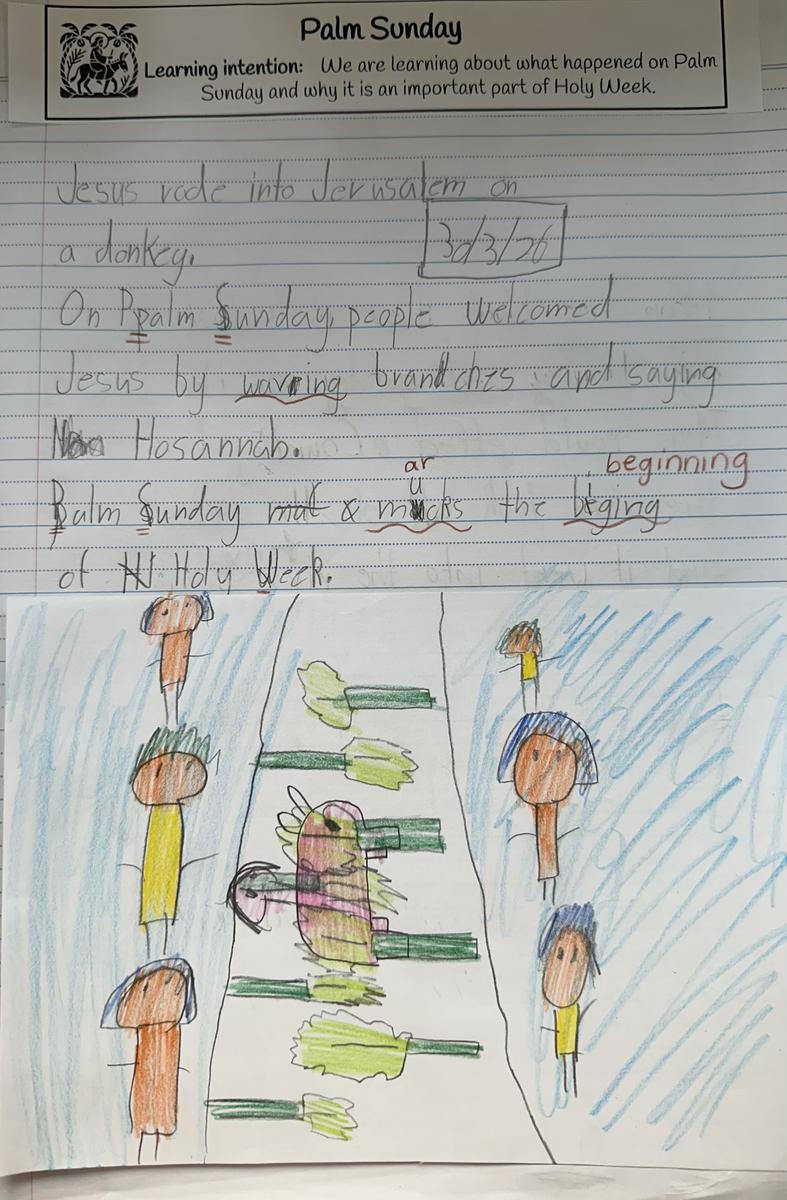 Palm Sunday
Learning intention: We are learning about what happened on Palm
Sunday and why it is an important part of Holy Week.
Jesus rode into Jerusalem on
a donkey.
30/3/26
On Ppalm Sunday, people welcomed
Jesus by warring brandches and saying
Hosannah.
ar
beginning
u
Palm Sunday mat & mucks the beging
of N Holy Week.